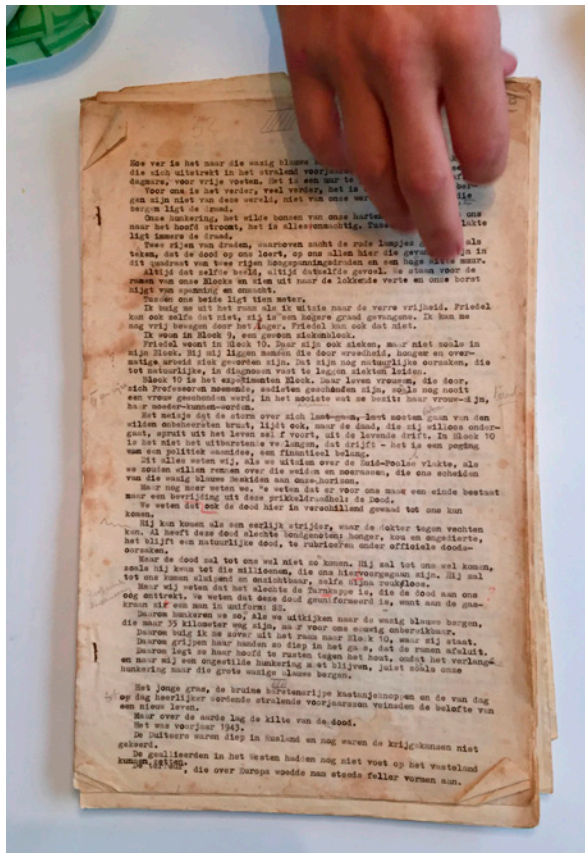 Hoe ver is het naar die wazig blauwe
die zich uitstrekt in het stralend voorjaars
dagmars, voor vrije voeten. Het is een uur te
Voor ons is het verder, veel verder, het is
gen zijn niet van deze wereld, niet van onze wer
bergen ligt de draad.
Onze hunkering, het wilde bonzen van onze harten ons
naar het hoofd stroomt, het is alles onmachtig. Tuss vlakte
ligt immers de draad.
Twee rijen van draden, waarboven zacht de rode lampjes als
teken, dat de dood op ons loert, op ons allen hier die gevan zijn in
dit quadraat van twee rijen hoogspanningsdraden en een hoge muur.
Altijd dat zelfde beeld, altijd datzelfde gevoel. We staan voor de
ramen van onze Blocks en zien uit naar de lokkende verte en onze borst
hijgt van spanning en onmacht.
Tussen ons beide ligt tien meter.
Ik buig me uit het raam als ik witzie naar de verre vrijheid. Friedel
kan ook zelfs dat niet, zij is een hogere graad gevangene. Ik kan me
nog vrij bewegen door het Lager. Friedel kan ook dat niet.
Ik woon in Block 9, een gewoon ziekenblock.
Friedel woont in Block 10. Daar zijn ook zieken, maar niet zoals in
mijn Block. Bij mij liggen mensen die door wreedheid, honger en over-
matige arbeid ziek geworden zijn. Dat zijn nog natuurlijke oorzaken, die
tot natuurlijke, in diagnosen vast te leggen ziekten leiden.
Block 10 is het experimenten Block. Daar leven vrouwen, die door,
zich Professoren noemende, sadisten geschonden zijn, zoals nog nooit
een vrouw geschonden werd, in het mooiste wat ze bezit: haar vrouw-zijn,
haar moeder-kunnen-worden.
Het meisje dat de storm over zich laat gaan, moeten gaan van den
wilden onbeheersten bruut, lijdt ook, maar de daad, die zij willoos onder-
gaat, spruit uit het leven zelf voort, uit de levende drift. In Block 10
is het niet het uitbarstende verlangen, dat drijft - het is een poging
van een politiek waanidee, een financieel belang.
Dit alles weten wij, als we uitzien over de Zuid-Poolse vlakte, als
we zouden willen rennen over die weiden en moerassen, die ons scheiden
van die wazig blauwe Beskiden aan onze horizon.
Maar nog meer weten we. We weten dat er voor ons maar een einde bestaat
maar een bevrijding uit deze prikkeldraadhel: de Dood.
We weten dat ook de dood hier in verschillend gewaad tot ons kan
komen.
Hij kan komen als een eerlijk strijder, waar de dokter tegen vechten
kan. Al heeft deze dood slechte bondgenoten: honger, kou en ongedierte,
het blijft een natuurlijke dood, te rubriceren onder officiele doods-
oorzaken.
Maar de dood zal tot ons wel niet zo komen. Hij zal tot ons wel komen,
zoals hij kwam tot die millioenen, die ons hier voorgegaan zijn. Hij zal
tot ons komen sluipend en onzichtbaar, zelfs bijna reukloos.
Maar wij weten dat het slechts de Tarnkappe is, die de dood aan ons
oog onttrekt. We weten dat deze dood geuniformeerd is, want aan de gas-
kraan zit een man in uniform: SS.
Daarom hunkeren we zo, als we uitkijken naar de wazig blauwe bergen,
die maar 35 kilometer weg zijn, maar voor ons eeuwig onbereikbaar.
Daarom buig ik me zover uit het raam naar Block 10, waar zij staat.
Daarom grijpen haar handen zo diep in het gaas, dat de ramen afsluit.
Daarom legt ze haar hoofd te rusten tegen het hout, omdat het verlang-
en naar mij een ongestilde hunkering moet blijven, juist zoals onze
hunkering naar die grote wazige blauwe bergen.
Het jonge gras, de bruine barstensrijpe kastanjeknoppen en de van dag
op dag heerlijker wordende stralende voorjaarszon veinsden de belofte van
een nieuw leven.
Maar over de aarde lag de kilte van de dood.
Het was voorjaar 1943.
De Duitsers waren diep in Rusland en nog waren de krijgskansen niet
gekeerd.
De geallieerden in het Westen hadden nog niet voet op het vasteland
kunnen zetten.
De terreur, die over Europa woedde nam steeds feller vormen aan.